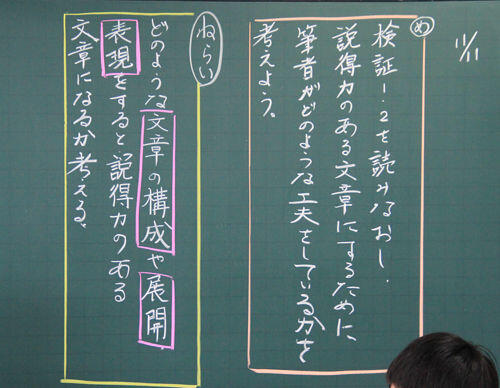 11/11
め
検証1.2を読みなおし、
説得力のある文章にするために、
筆者がどのような工夫をしているかを
考えよう。
ねらい
どのような文章の構成や展開、
表現をすると説得力のある
文章になるか考える。